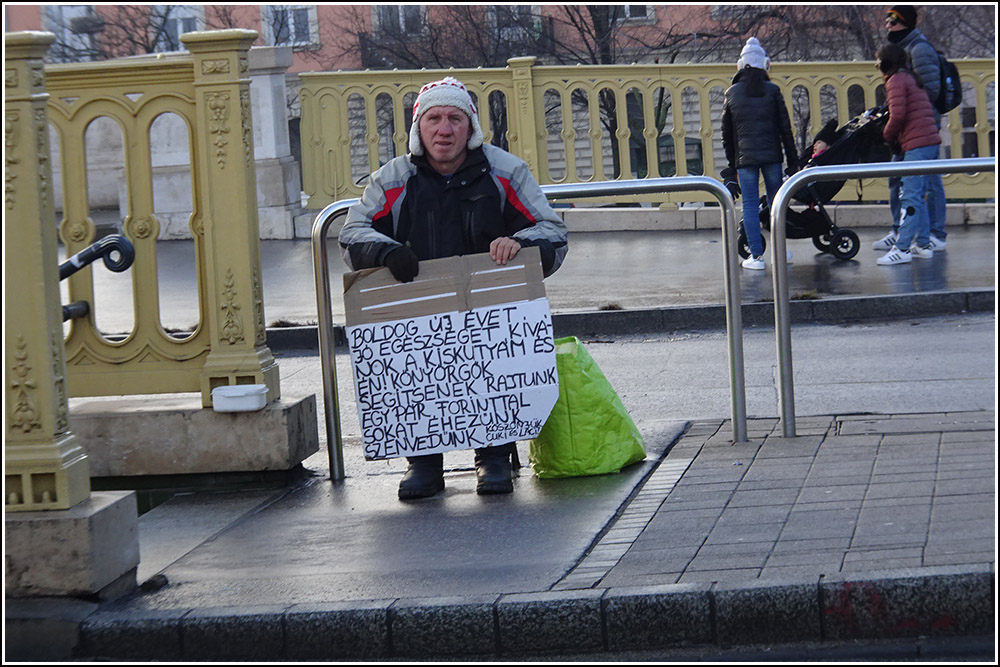 BOLDOG ÚJ ÉVET
JÓ EGÉSZSÉGET KÍVÁ
NOK A KISKUTYÁM ÉS
ÉN! KÖNYÖRGÖK
SEGÍTSENEK RAJTUNK
EGY PÁR FORINTTAL
SOKAT ÉHEZÜNK
SZENVEDÜNK KÖSZÖNJÜK
CUKI ÉS LACI